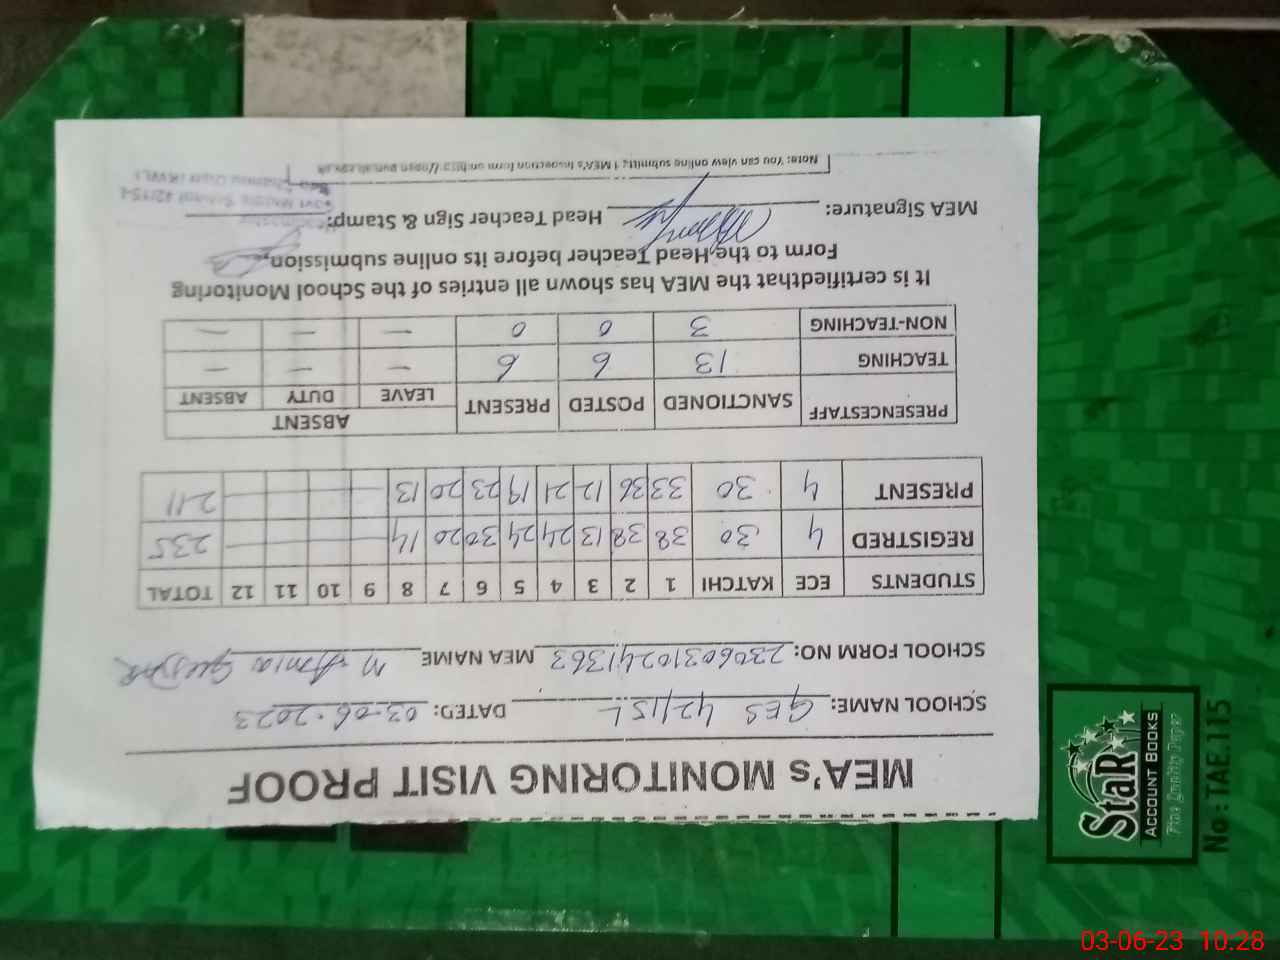 MEA's MONITORING VISIT PROOF
SCHOOL NAME: GES 42/15L DATED: 03-06-2023
SCHOOL FORM NO: 23060310241363 MEA NAME
STUDENTS ECE KATCHI 1 2 3 4 5 6 7 8 9 10 11 12 TOTAL
REGISTRED 4 30 38 38 13 24 24 30 20 14 — 235
PRESENT 4 30 33 36 12 21 19 23 20 13 — 211
PRESENCESTAFF SANCTIONED POSTED PRESENT ABSENT
LEAVE DUTY ABSENT
TEACHING 13 6 6 — — —
NON-TEACHING 3 0 0 — — —
It is certifiedthat the MEA has shown all entries of the School Monitoring
Form to the Head Teacher before its online submission.
MEA Signature: Head Teacher Sign & Stamp:
Note: You can view online submitted MEA's Inspection form on
StaR
ACCOUNT BOOKS
Fine Quality Paper
No : TAE.115
03-06-23 10:28